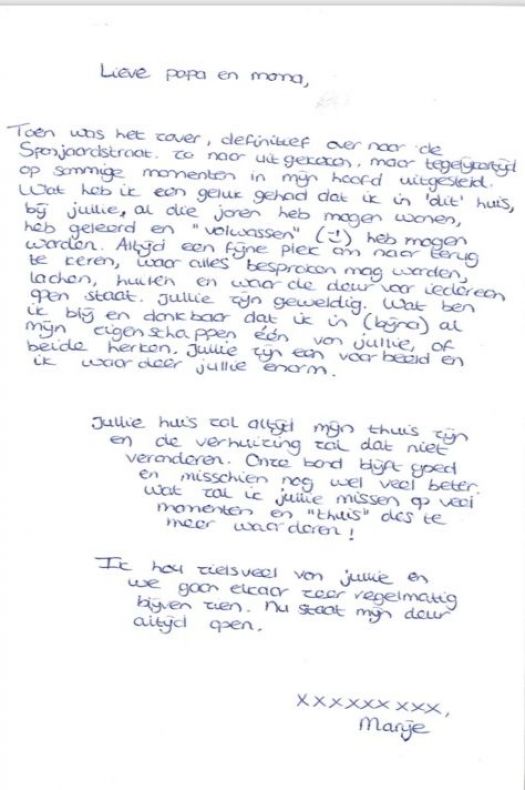 Lieve papa en mama,
Toen was het zover, definitief over naar de
Spanjaardstraat. Zo naar uit gekeken, maar tegelijkertijd
op sommige momenten in mijn hoofd uitgesteld.
Wat heb ik een geluk gehad dat ik in 'dit' huis,
bij jullie, al die jaren heb mogen wonen,
heb geleerd en "volwassen" (:-!) heb mogen
worden. Altijd een fijne plek om naar terug
te keren, waar alles besproken mag worden,
lachen, huilen en waar de deur voor iedereen
open staat. Jullie zijn geweldig. Wat ben
ik blij en dankbaar dat ik in (bijna) al
mijn eigenschappen één van jullie, of
beide herken. Jullie zijn een voorbeeld en
ik waardeer jullie enorm.
Jullie huis zal altijd mijn thuis zijn
en de verhuizing zal dat niet
veranderen. Onze band blijft goed
en misschien nog wel veel beter.
Wat zal ik jullie missen op veel
momenten en "thuis" des te
meer waarderen!
Ik hou zielsveel van jullie en
we gaan elkaar zeer regelmatig
blijven zien. Nu staat mijn deur
altijd open.
xxxxxxxxx,
Marije